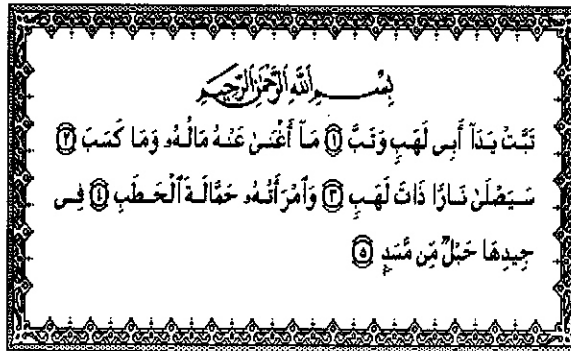 بِسْمِ اللَّهِ الرَّحْمَٰنِ الرَّحِيمِ
تَبَّتْ يَدَآ أَبِى لَهَبٍ وَتَبَّ ١ مَآ أَغْنَىٰ عَنْهُ مَالُهُۥ وَمَا كَسَبَ ٢
سَيَصْلَىٰ نَارًا ذَاتَ لَهَبٍ ٣ وَٱمْرَأَتُهُۥ حَمَّالَةَ ٱلْحَطَبِ ٤ فِى
جِيدِهَا حَبْلٌ مِّن مَّسَدٍۭ ٥